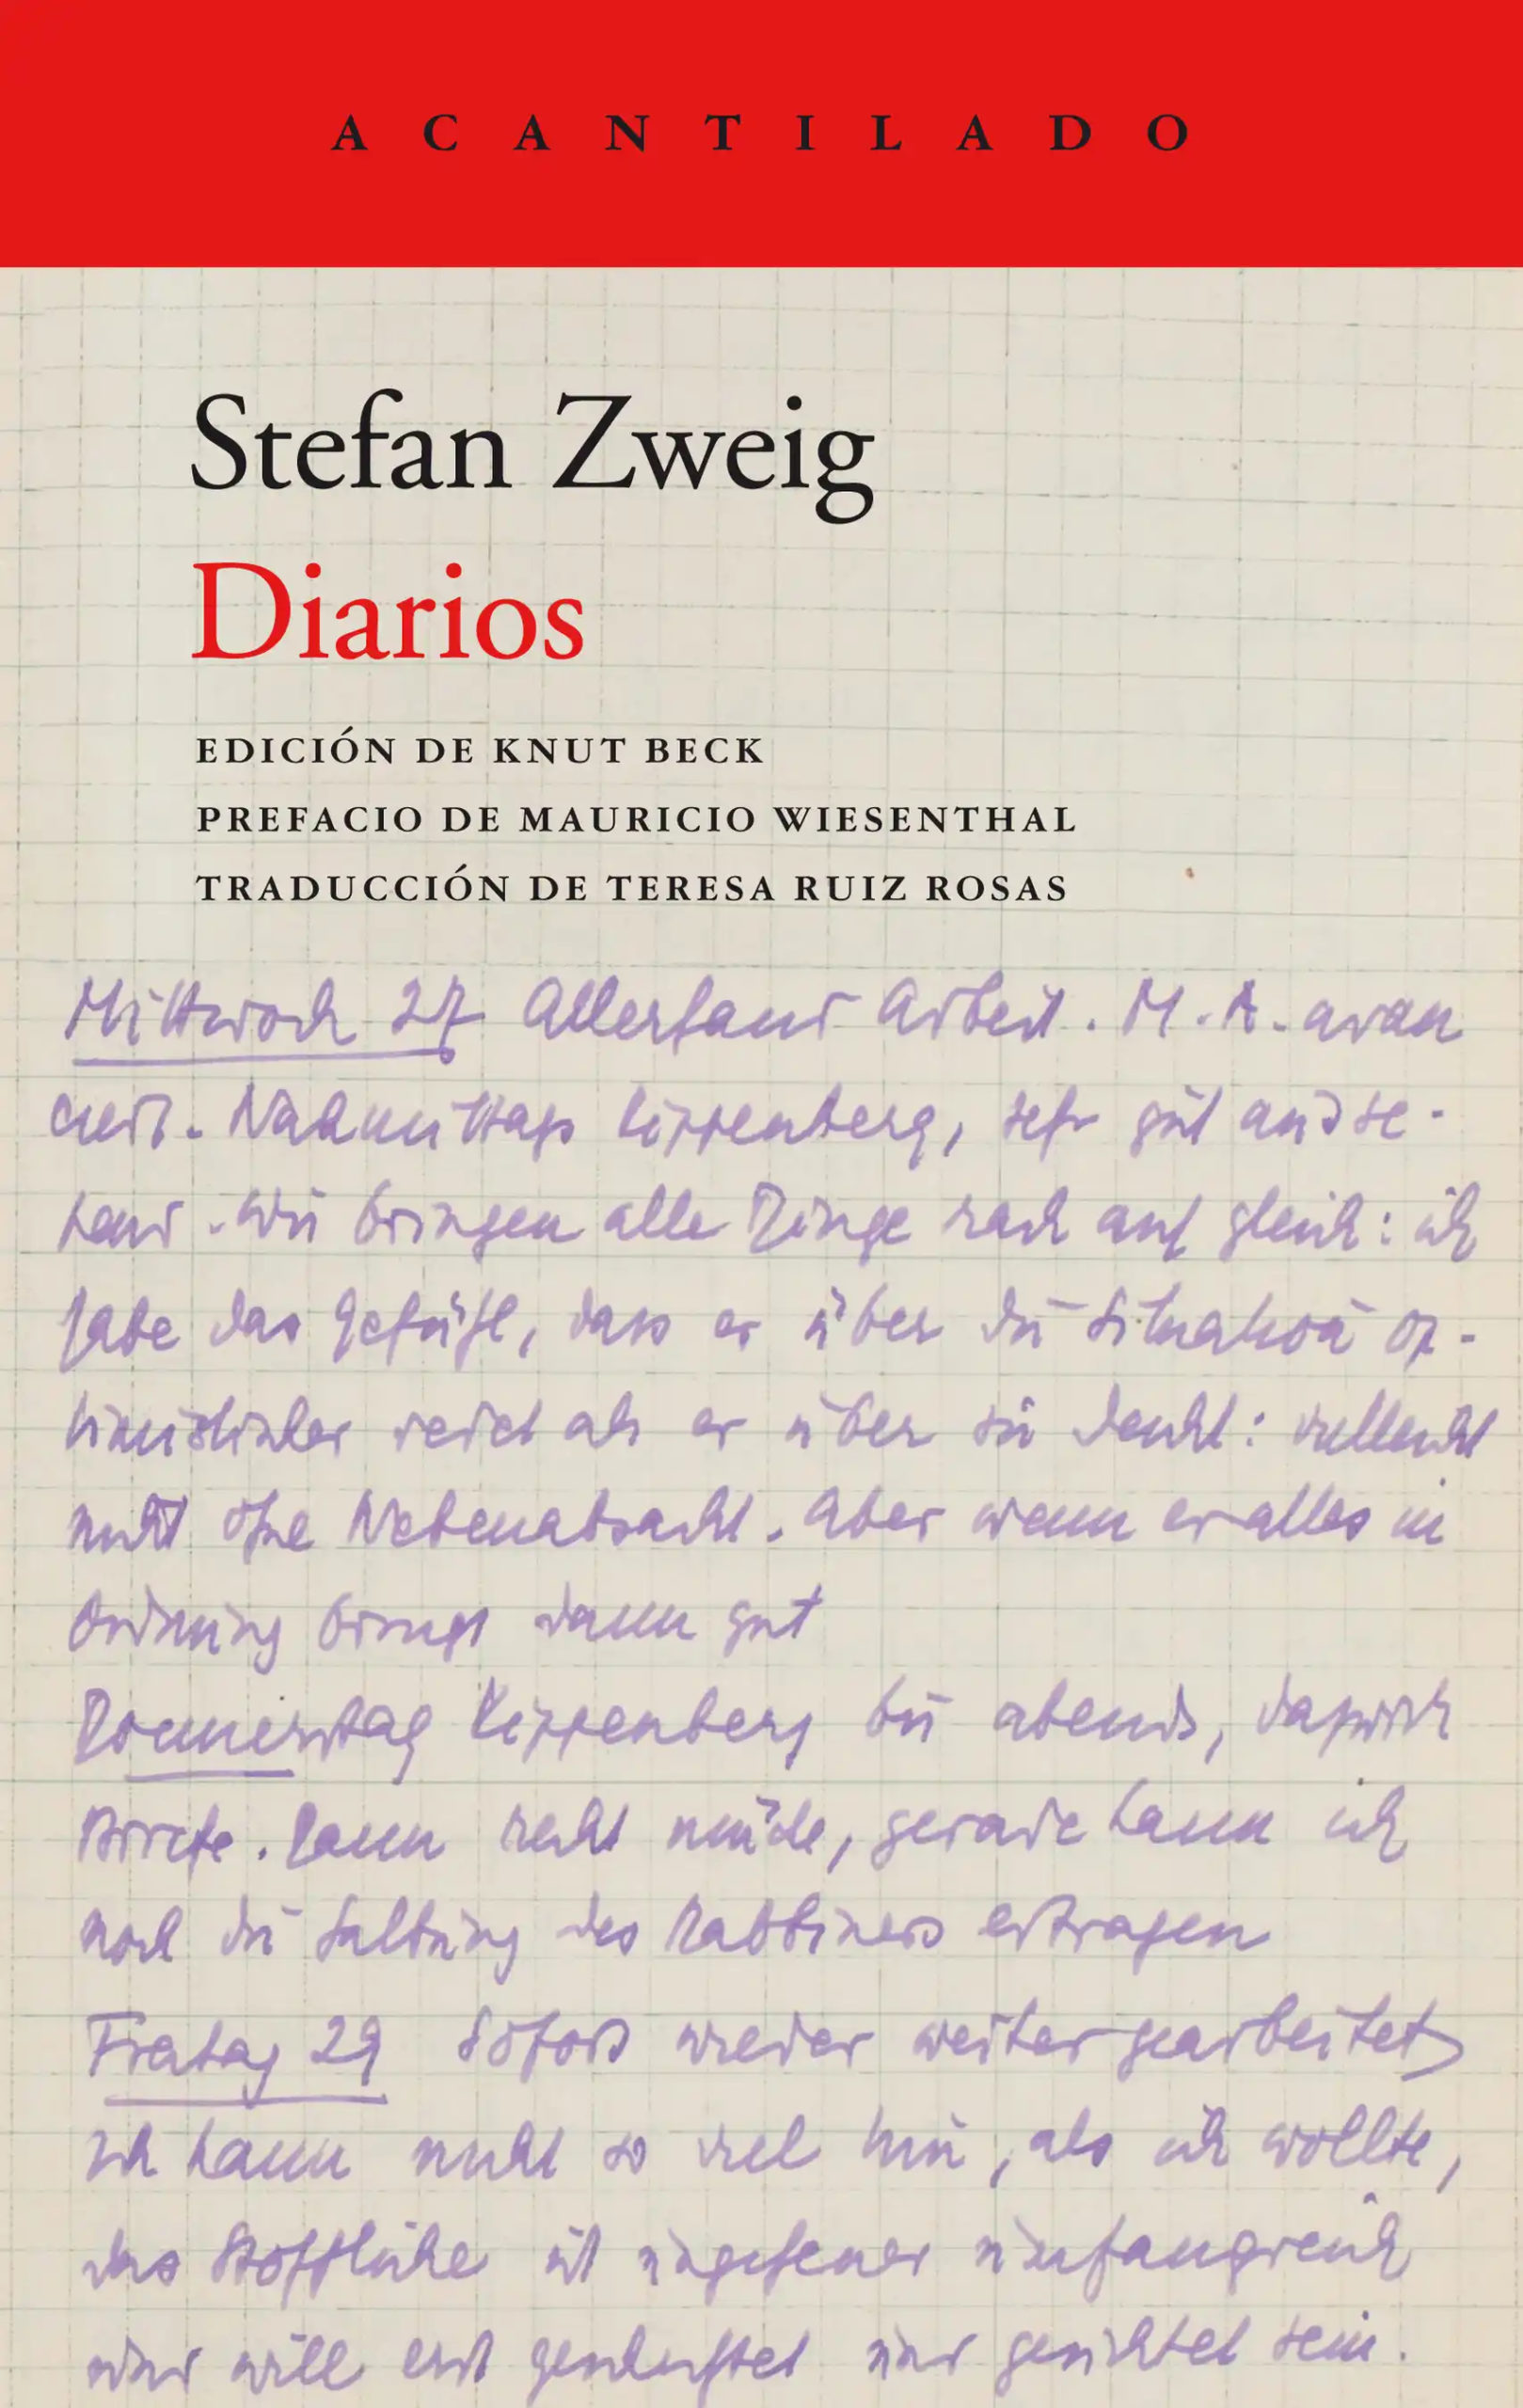 ACANTILADO
Stefan Zweig
Diarios
EDICIÓN DE KNUT BECK
PREFACIO DE MAURICIO WIESENTHAL
TRADUCCIÓN DE TERESA RUIZ ROSAS
Mittwoch 27 Allerhand Arbeit. M. A. avan
ciert. Nachmittags Kippenberg, sehr gut ausse-
hend. Wir bringen alle Dinge rasch auf gleich: ich
habe das Gefühl, dass er über die Situation op-
timistischer redet als er über sie denkt: vielleicht
nicht ohne Nebenabsicht. Aber wenn er alles in
Ordnung bringt dann gut
Donnerstag Kippenberg bis abends, dazwisch
Briefe. Dann recht müde, gerade kann ich
noch die Salbung des Rabbiners ertragen
Freitag 29 Sofort wieder weitergearbeitet
Ich kann nicht so viel tun, als ich wollte,
das Stoffliche ist ungeheuer umfangreich
und will erst und gesichtet sein.